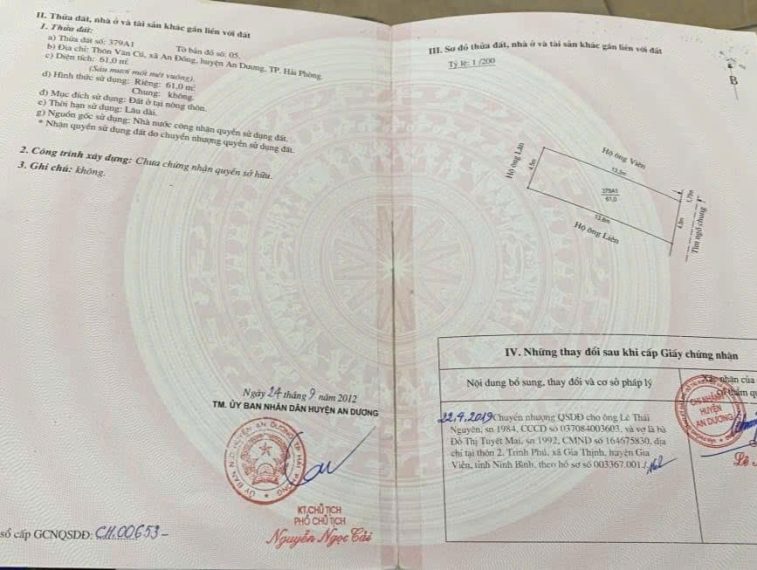 II. Thửa đất, nhà ở và tài sản khác gắn liền với đất
1. Thửa đất:
a) Thửa đất số: 379A1 Tờ bản đồ số: 05.
b) Địa chỉ: Thôn Văn Cú, xã An Đồng, huyện An Dương, TP. Hải Phòng.
c) Diện tích: 61,0 m²
(Sáu mươi mốt mét vuông).
d) Hình thức sử dụng: Riêng: 61,0 m²
Chung: không.
đ) Mục đích sử dụng: Đất ở tại nông thôn.
e) Thời hạn sử dụng: Lâu dài.
g) Nguồn gốc sử dụng: Nhà nước công nhận quyền sử dụng đất.
* Nhận quyền sử dụng đất do chuyển nhượng quyền sử dụng đất.
2. Công trình xây dựng: Chưa chứng nhận quyền sở hữu.
3. Ghi chú: không.
Ngày 24 tháng 9 năm 2012
TM. ỦY BAN NHÂN DÂN HUYỆN AN DƯƠNG
ỦY BAN N.D. HUYỆN AN DƯƠNG T.P HẢI PHÒNG
KT.CHỦ TỊCH
PHÓ CHỦ TỊCH
Nguyễn Ngọc Cải
số cấp GCNQSDĐ: CH.00653-
III. Sơ đồ thửa đất, nhà ở và tài sản khác gắn liền với đất
Tỷ lệ: 1/200
B
Hộ ông Lân
4.5m
Hộ ông Viên
13.5m
379A1
61,0
13.6m
Hộ ông Liên
4.5m
1.75m
Tim ngõ chung
IV. Những thay đổi sau khi cấp Giấy chứng nhận
Nội dung bổ sung, thay đổi và cơ sở pháp lý
Xác nhận của
có thẩm qu
22.4.2019 Chuyển nhượng QSDĐ cho ông Lê Thái
Nguyên, sn 1984, CCCD số 037084003603, và vợ là bà
Đỗ Thị Tuyết Mai, sn 1992, CMND số 164675830, địa
chỉ tại thôn 2, Trinh Phú, xã Gia Thịnh, huyện Gia
Viễn, tỉnh Ninh Bình, theo hồ sơ số 003367.001
CHI NHÁNH
HUYỆN
AN DƯƠNG
Lê